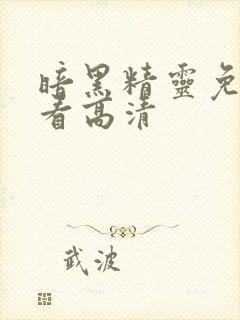 暗黑精靈免
看高清
武波